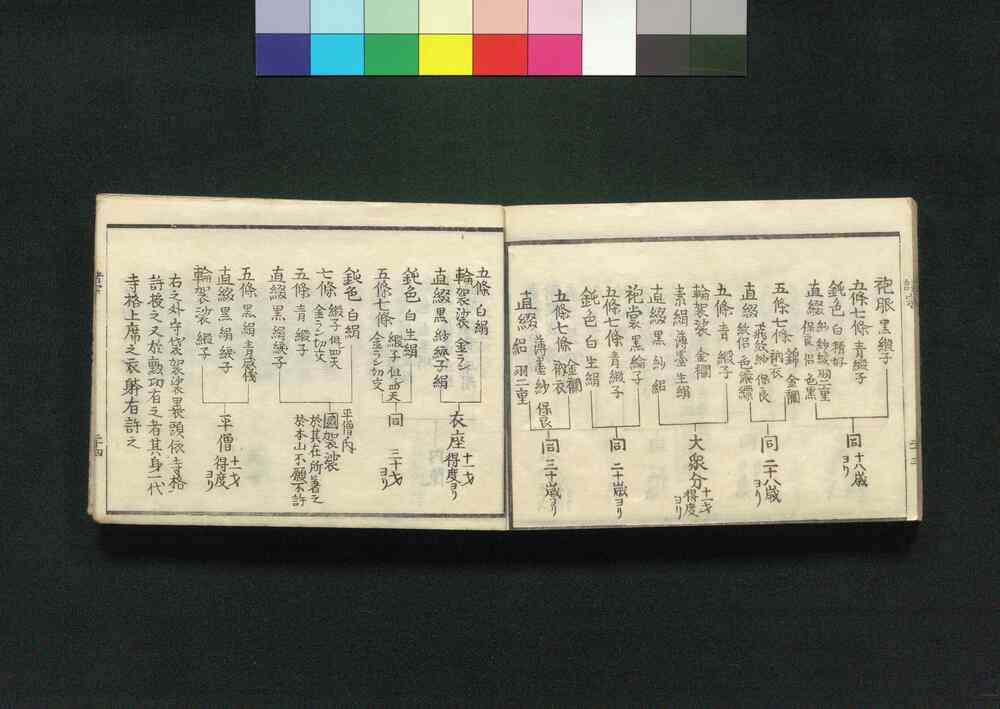 袍服 黒緞子
五條七條 青緞子
鈍色 白精好
直綴 紗紋綾羽二重
同 十八歳
五條七條 衲衣 錦 金襴
直綴
同 二十八歳ヨリ
五條 青 緞子
輪袈裟 金襴
素絹 薄墨 生絹
直綴 黒 紗 絽
大衆分 十一才得度ヨリ
袍裳 黒綸子
五條七條 青緞子
鈍色 白 生絹
同 二十歳ヨリ
五條七條 金襴 衲衣
薄墨 紗
直綴 絽 羽二重
同 三十歳ヨリ
五條 白絹
輪袈裟 金ラン
直綴 黒 紗 綾子 絹
衣座 十一才得度ヨリ
鈍色 白 生絹
五條七條 緞子但四天 金ラン切交
同 三十才
鈍色 白絹
七條 緞子但四天 金ラン切交
五條 青 緞子
直綴 黒 絹 綾子
平僧ノ内
國袈裟
於其在所著之
於本山不願不許
五條 黒絹
直綴 黒 絹 綾子
輪袈裟 緞子
平僧 十一才得度ヨリ
右之外守袋袈裟裹頭依寺格
許後之又於勲功有之者其身一代
寺格上席之衣躰有許之
二十四